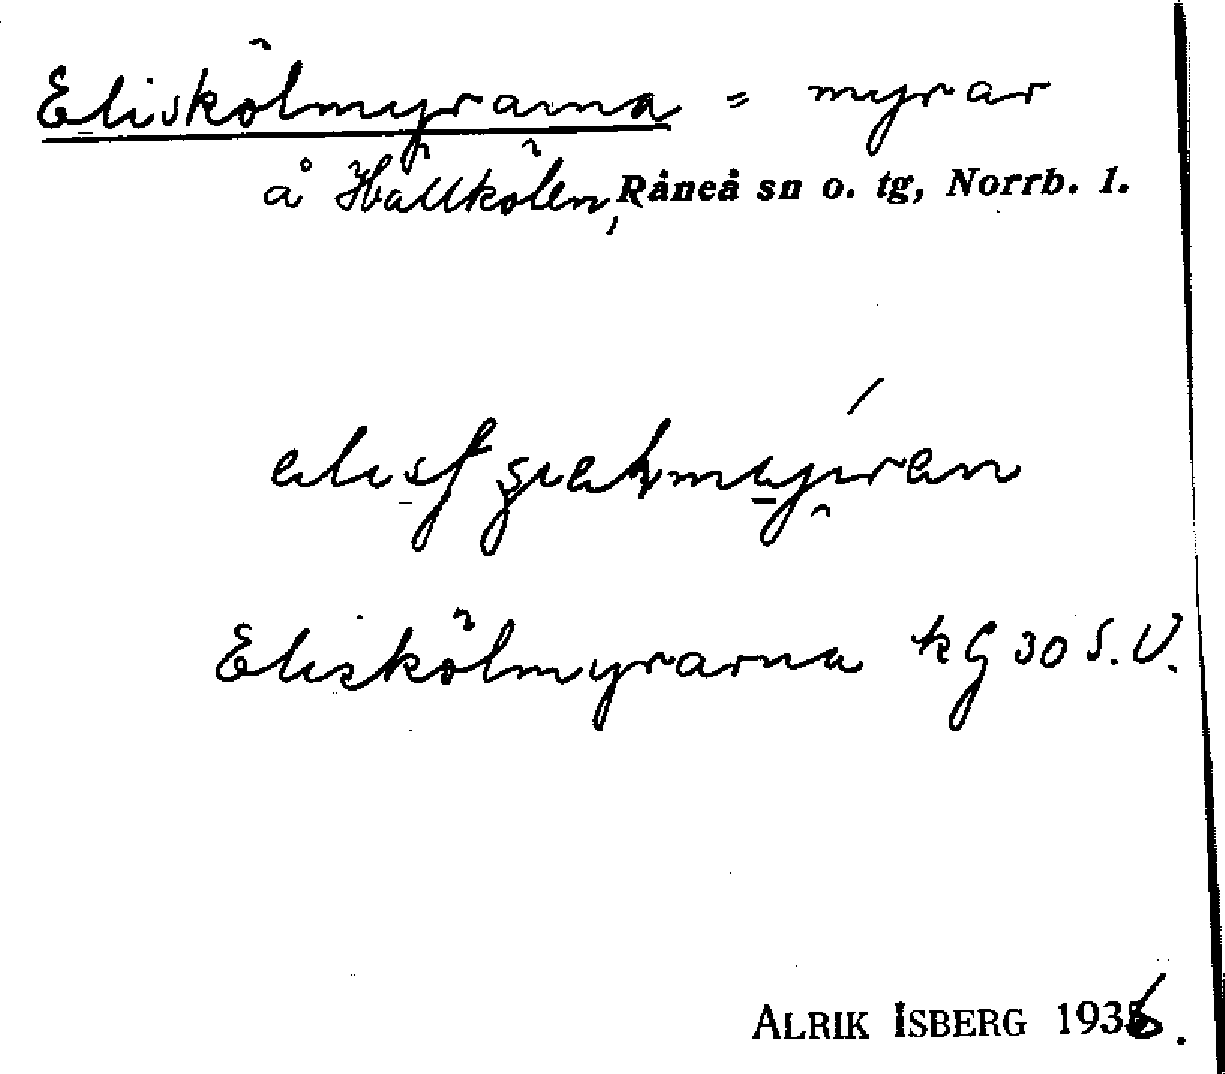 Eliskölmyrarna = myrar
å Hällkölen, Råneå sn o. tg, Norrb. l.
Eliskölmyrarna kG 30 S.V.
ALRIK ISBERG 1936.